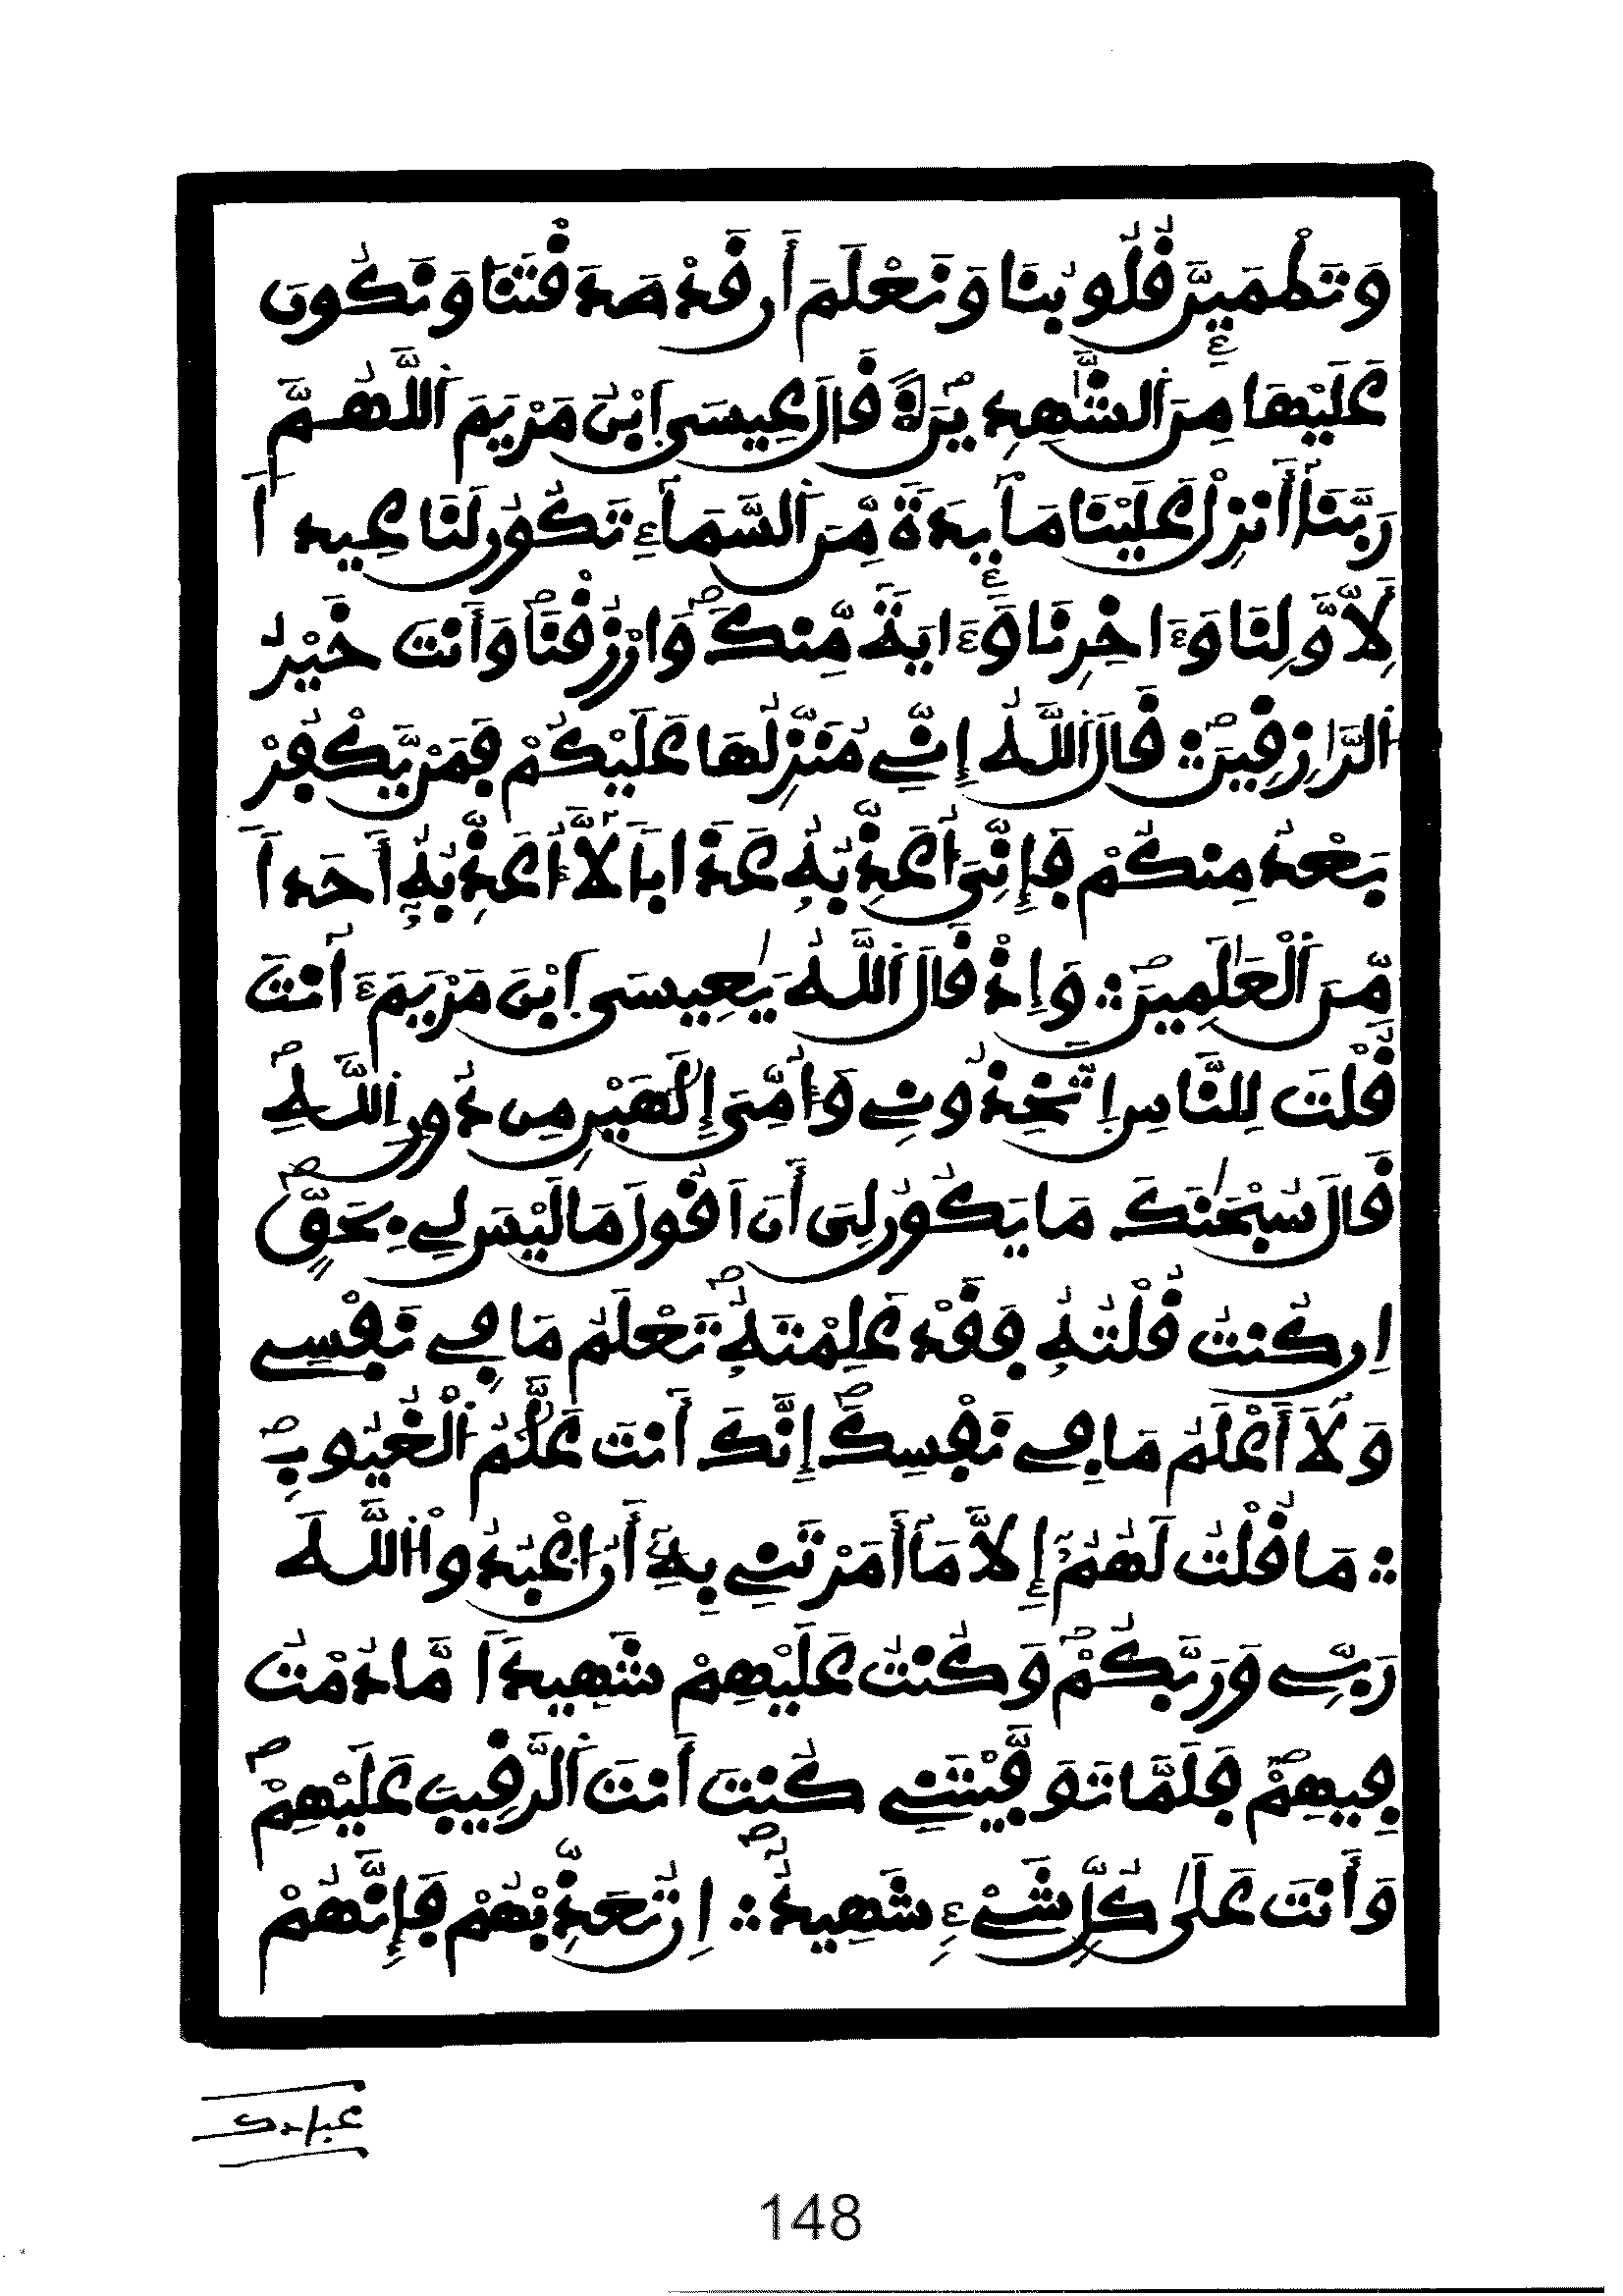 وَتَطْمَئِنَّ قُلُوبُنَا وَنَعْلَمَ أَن قَدْ صَدَقْتَنَا وَنَكُونَ
عَلَيْهَا مِنَ ٱلشَّٰهِدِينَ قَالَ عِيسَى اَبْنُ مَرْيَمَ اَللَّهُمَّ
رَبَّنَا أَنزِلْ عَلَيْنَا مَآئِدَةً مِّنَ ٱلسَّمَآءِ تَكُونُ لَنَا عِيداً
لِّأَوَّلِنَا وَءَاخِرِنَا وَءَايَةً مِّنكَ وَارْزُقْنَا وَأَنتَ خَيْرُ
اُلرَّازِقِينَ ؞ قَالَ اَللَّهُ إِنِّي مُنَزِّلُهَا عَلَيْكُمْ فَمَنْ يَّكْفُرْ
بَعْدُ مِنكُمْ فَإِنِّيَ أُعَذِّبُهُۥ عَذَاباً لَّآ أُعَذِّبُهُۥٓ أَحَداً
مِّنَ اَلْعَٰلَمِينَ ؞ وَإِذْ قَالَ اَللَّهُ يَٰعِيسَى اَبْنَ مَرْيَمَ ءَآنتَ
قُلْتَ لِلنَّاسِ اِتَّخِذُونِي وَأُمِّيَ إِلَٰهَيْنِ مِن دُونِ اِللَّهِ
قَالَ سُبْحَٰنَكَ مَا يَكُونُ لِيَ أَنَ اَقُولَ مَا لَيْسَ لِي بِحَقٍّ
اِن كُنتُ قُلْتُهُۥ فَقَدْ عَلِمْتَهُۥ تَعْلَمُ مَا فِي نَفْسِي
وَلَآ أَعْلَمُ مَا فِي نَفْسِكَ إِنَّكَ أَنتَ عَلَّٰمُ اُلْغُيُوبِ
؞ مَا قُلْتُ لَهُمُۥٓ إِلَّا مَآ أَمَرْتَنِي بِهِۦٓ أَنُ اُعْبُدُواْ اُللَّهَ
رَبِّي وَرَبَّكُمْ وَكُنتُ عَلَيْهِمْ شَهِيداً مَّا دُمْتُ
فِيهِمْ فَلَمَّا تَوَفَّيْتَنِي كُنتَ أَنتَ اَلرَّقِيبَ عَلَيْهِمْ
وَأَنتَ عَلَىٰ كُلِّ شَيْءٍ شَهِيدٌ ؞ اِن تُعَذِّبْهُمْ فَإِنَّهُمْ
148